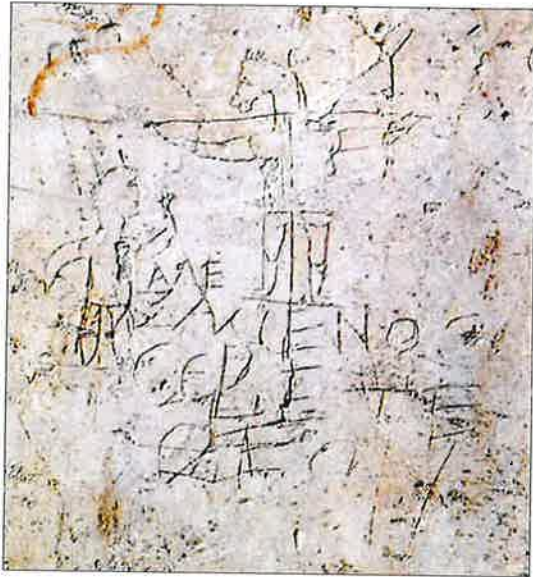 ΑΛΕ
ΞΑΜΕΝΟϹ
ϹΕΒΕΤΕ
ΘΕΟΝ